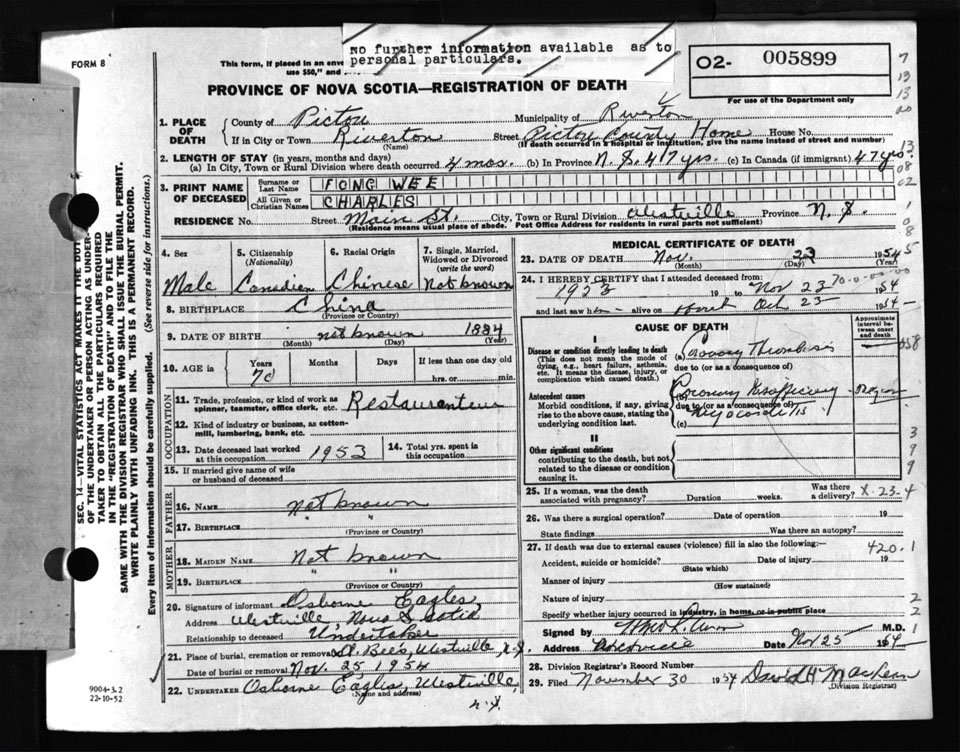 No further information available as to
personal particulars.
FORM 8
This form, if placed in an enve
use $50," and
O2- 005899
For use of the Department only
PROVINCE OF NOVA SCOTIA—REGISTRATION OF DEATH
1. PLACE OF DEATH
County of Pictou Municipality of Riverton
If in City or Town Riverton Street Pictou County Home House No.
(Name) (If death occurred in a hospital or institution, give the name instead of street and number)
2. LENGTH OF STAY (in years, months and days)
(a) In City, Town or Rural Division where death occurred 4 mos. (b) In Province N.S. 47 yrs. (c) In Canada (if immigrant) 47 yrs.
3. PRINT NAME OF DECEASED
Surname or Last Name FONG WEE
All Given or Christian Names CHARLES
RESIDENCE No. Street Main St. City, Town or Rural Division Westville Province N.S.
(Residence means usual place of abode. Post Office Address for residents in rural parts not sufficient)
4. Sex
Male
5. Citizenship (Nationality)
Canadian
6. Racial Origin
Chinese
7. Single, Married, Widowed or Divorced (write the word)
Not known
8. BIRTHPLACE China
(Province or Country)
9. DATE OF BIRTH not known 1884
(Month) (Day) (Year)
10. AGE in Years Months Days If less than one day old
70 hrs. or min.
OCCUPATION
11. Trade, profession, or kind of work as spinner, teamster, office clerk, etc. Restauranteur
12. Kind of industry or business, as cotton-mill, lumbering, bank, etc.
13. Date deceased last worked at this occupation 1953
14. Total yrs. spent in this occupation
15. If married give name of wife or husband of deceased
FATHER
16. Name Not known
17. Birthplace "
(Province or Country)
MOTHER
18. MAIDEN NAME Not known
19. BIRTHPLACE " "
(Province or Country)
20. Signature of informant Osborne Eagles
Address Westville, Nova Scotia
Relationship to deceased Undertaker
21. Place of burial, cremation or removal St. Bees, Westville, N.S.
Date of burial or removal Nov. 25, 1954
22. UNDERTAKER Osborne Eagles, Westville, N.S.
(Name and address)
MEDICAL CERTIFICATE OF DEATH
23. DATE OF DEATH Nov. 23 1954
(Month) (Day) (Year)
24. I HEREBY CERTIFY that I attended deceased from:
1923 19 to Nov 23 1954
and last saw him alive on Oct 23 1954
CAUSE OF DEATH
Approximate interval between onset and death
I
Disease or condition directly leading to death
(This does not mean the mode of dying, e.g., heart failure, asthenia, etc. It means the disease, injury, or complication which caused death.)
(a) Coronary Thrombosis
due to (or as a consequence of)
Antecedent causes
Morbid conditions, if any, giving rise to the above cause, stating the underlying condition last.
Coronary Insufficiency
due to (or as a consequence of)
Myocarditis
(c)
II
Other significant conditions
contributing to the death, but not related to the disease or condition causing it.
25. If a woman, was the death associated with pregnancy? Duration weeks. Was there a delivery? X-23-4
26. Was there a surgical operation? Date of operation 19
State findings Was there an autopsy?
27. If death was due to external causes (violence) fill in also the following:— 420.1
Accident, suicide or homicide? Date of injury 19
(State which)
Manner of injury
(How sustained)
Nature of injury
Specify whether injury occurred in industry, in home, or in public place
Signed by M.D.
Address Date Nov 25 1954
28. Division Registrar's Record Number
29. Filed November 30 1954 David H MacLean
(Division Registrar)
SEC. 14—VITAL STATISTICS ACT MAKES IT THE DUTY
OF THE UNDERTAKER OR PERSON ACTING AS UNDER-
TAKER TO OBTAIN ALL THE PARTICULARS REQUIRED
IN THE "REGISTRATION OF DEATH" AND TO FILE THE
SAME WITH THE DIVISION REGISTRAR WHO SHALL ISSUE THE BURIAL PERMIT.
WRITE PLAINLY WITH UNFADING INK. THIS IS A PERMANENT RECORD.
Every item of information should be carefully supplied. (See reverse side for instructions.)
9004-3.2
22-10-52